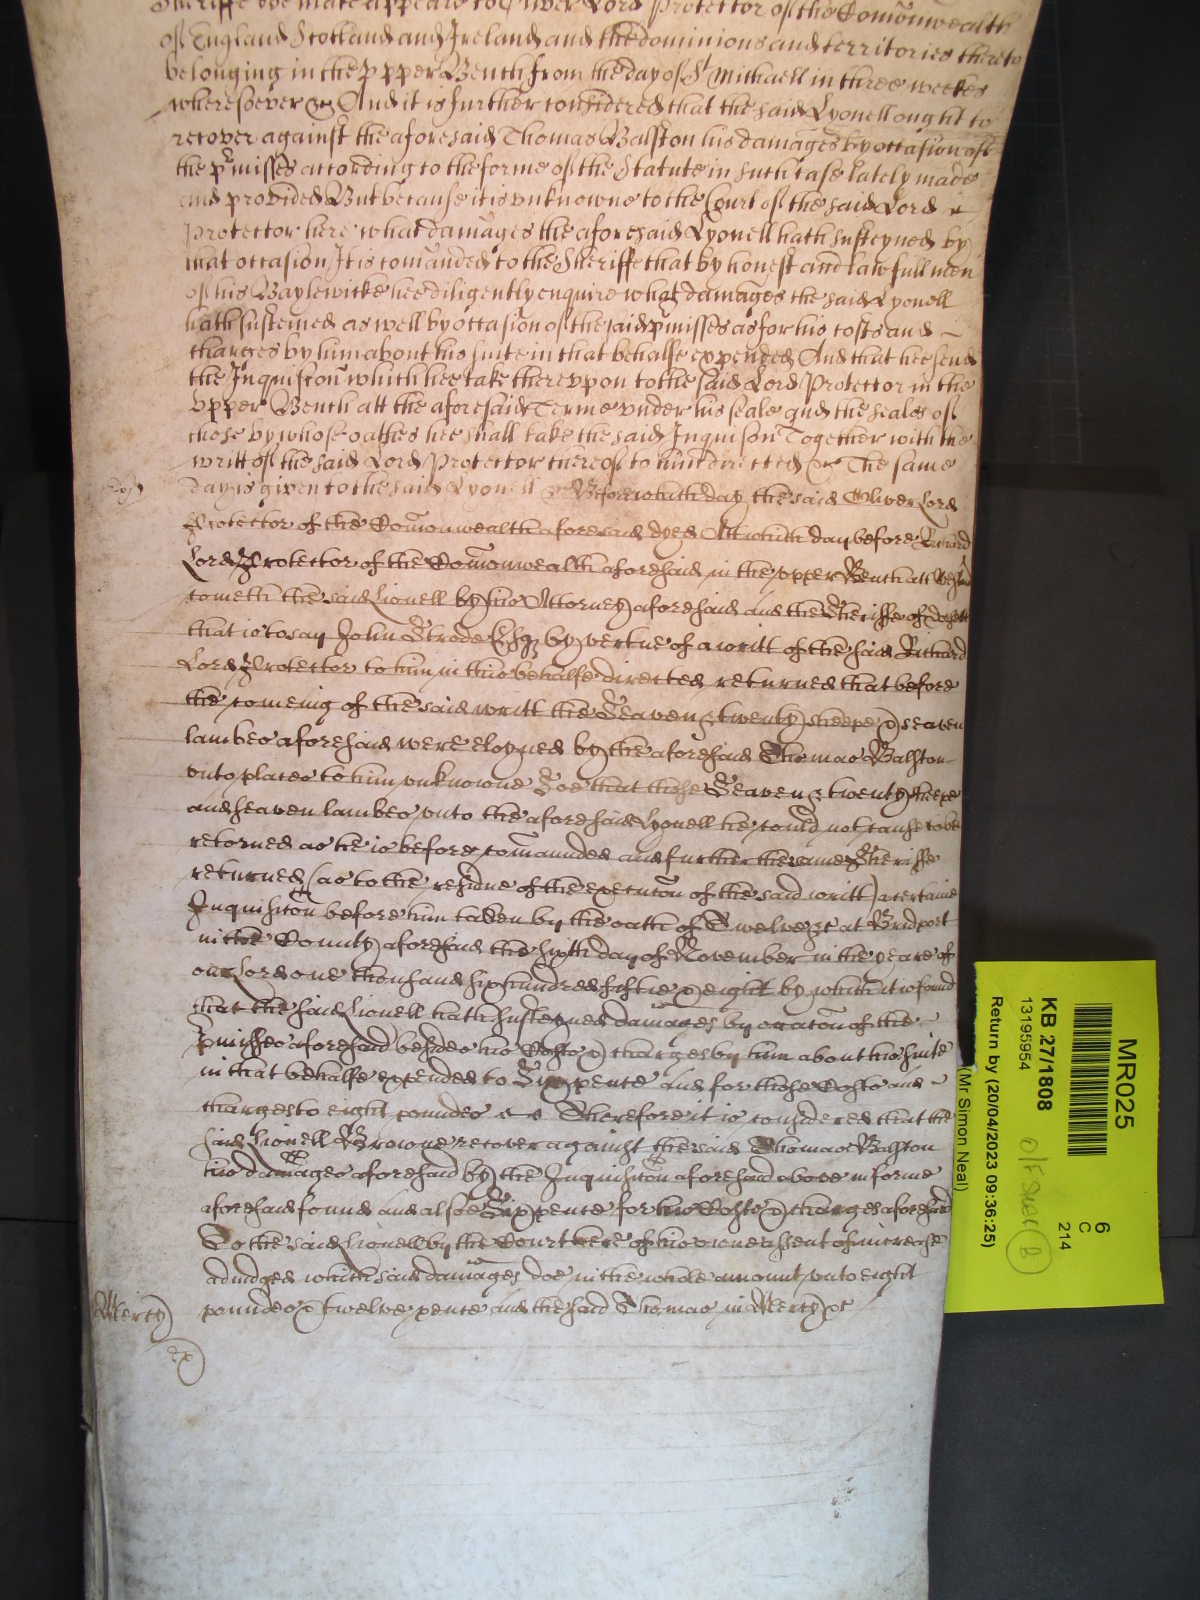 Sheriffe doe make appeare to Oliver Lord Protector of the Com̃onwealth
of England Scotland and Ireland and the dominions and territories thereto
belonging in the Vpper Bench from the day of St Michaell in three weekes
wheresoever &c And it is further considered that the said Lyonell ought to
recover against the aforesaid Thomas Balston his damages by occasion of
the p̃misses according to the forme of the Statute in such case lately made
and provided But because it is vnknowne to the Court of the said Lord
Protector here what damages the aforesaid Lyonell hath susteyned by
that occasion It is com̃anded to the Sheriffe that by honest and lawfull men
of his Baylewicke hee diligently enquire what damages the said Lyonell
hath susteined as well by occasion of the said p̃misses as for his costs and
charges by him about his suite in that behalfe expended And that hee send
the Inquisic̃on which hee take therevpon to the said Lord Protector in the
vpper Bench att the aforesaid Terme vnder his seale and the seales of
those by whose oathes hee shall take the said Inquisic̃on Together with the
writt of the said Lord Protector thereof to him directed &c The same
day is given to the said Lyonell &c Before which day the said Oliver Lord
Protector of the Com̃onwealth aforesaid dyed Att which day before Richard
Lord Protector of the Com̃onwealth aforesaid in the vpper Bench att
cometh the said Lionell by his Attorney aforesaid and the Sheriffe of
that is to say John Strode Esqr by vertue of a writt of the said Richard
Lord Protector to him in this behalfe directed returned that before
the comeing of the said writt the Seaven & twenty sheepe & seaven
lambes aforesaid were eloyned by the aforesaid Thomas Balston
vnto places to him vnknowne Soe that those Seaven & twenty sheepe
and seaven lambes vnto the aforesaid Lyonell he could not cause to be
retorned as he is before com̃aunded and further the same Sheriffe
returned (as to the residue of the execuc̃on of the said writt) a certaine
Inquisic̃on before him taken by the oath of Twelve &c at Bridport
in the County aforesaid the sixth day of November in the yeare of
our Lord one thousand six hundred fiftie & eight by which it is found
that the said Lionell hath susteyned damages by occac̃on of the
p̃misses aforesaid besides his Costs & charges by him about his suite
in that behalfe expended to Sixpence And for those Costs and
charges to eight poundes Therefore it is considered that the
said Lionell Browne recover against the said Thomas Balston
his damages aforesaid by the Inquisic̃on aforesaid above in forme
aforesaid found and alsoe Sixpence for his Costs & charges aforesaid
To the said Lionell by the Court here of his owne assent of increase
adiudged which said damages doe in the whole amount vnto eight
poundes & twelve pence And the said Thomas in Mercy &c
Mercy
MR025
KB 27/1808
13195954
Return by (20/04/2023 09:36:25)
(Mr Simon Neal)
6
C
214